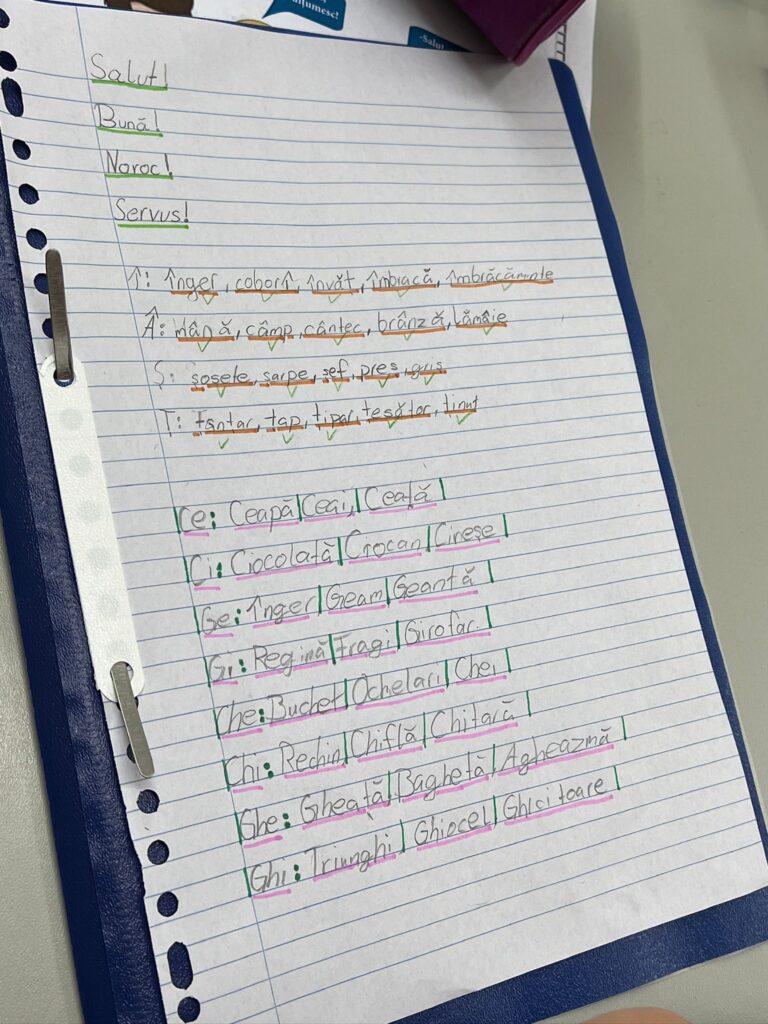 ulțumesc!
-Salut
Salut!
Bună!
Noroc!
Servus!
Î: înger, coborî, învăt, îmbracă, îmbrăcăminte
Â: mână, câmp, cântec, brânză, lămâie
Ș: șosele, șarpe, șef, preș, gri̦s
Ț: țânțar, țap, țipar, țesător, ținut
Ce: Ceapă|Ceai,|Ceață|
Ci: Ciocolată|Ciocan|Cireșe|
Ge: Înger|Geam|Geantă|
Gi: Regină|Fragi|Girofar.|
Che: Buchet|Ochelari|Chei|
Chi: Rechin|Chiflă|Chitară|
Ghe: Gheață|Baghetă|Agheazmă|
Ghi: Triunghi|Ghiocel|Ghicitoare|